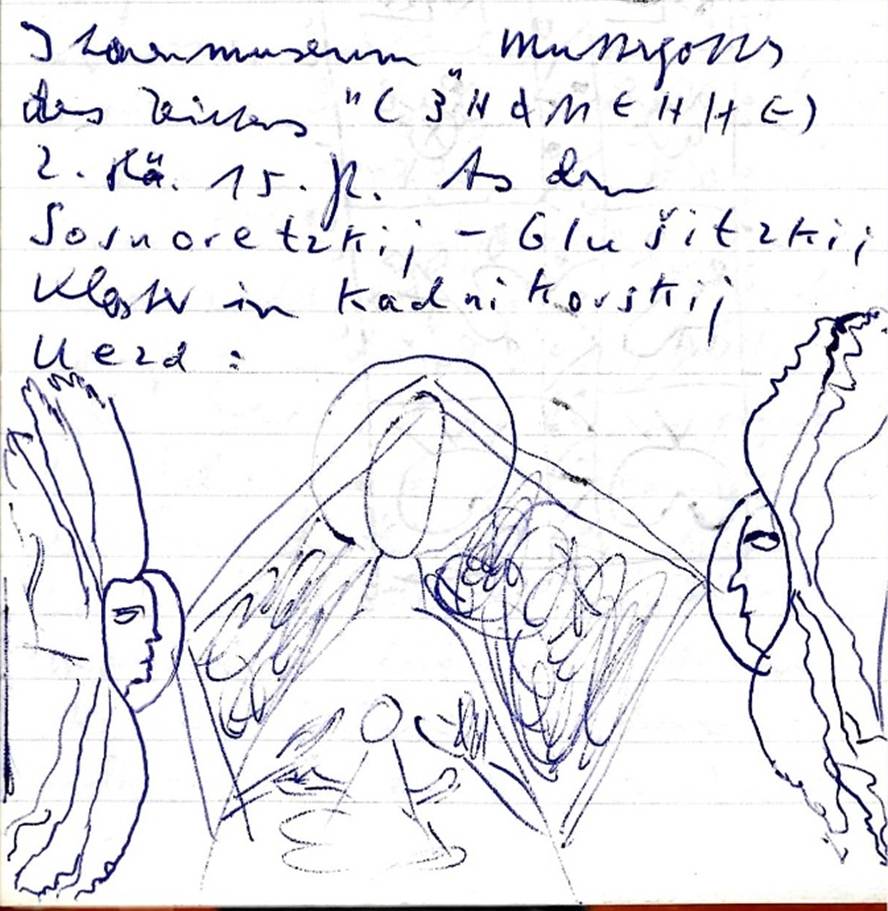 Ikonenmuseum Muttergottes
des Zeichens "(З"НАМЕННЕ)
2. Hä. 15. Jh. As dem
Sosnoretzkij - Glušitzkij
Kloster in Kadnikovskij
Uezd: